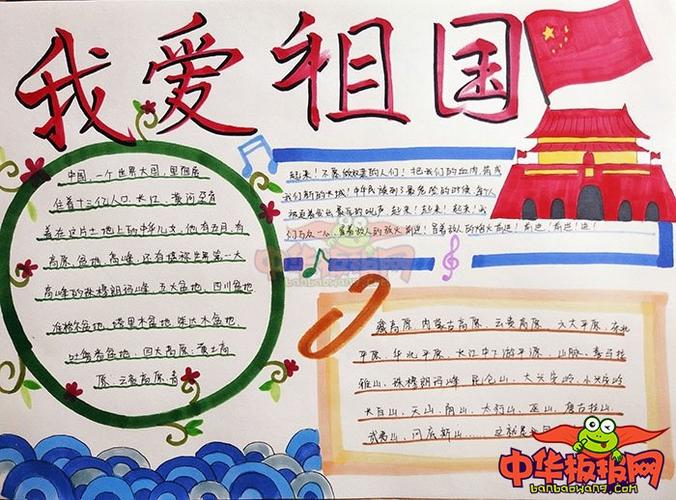 我爱祖国
中国,一个世界大国,里面居
住着十三亿人口。长江、黄河孕育
着在这片土地上的中华儿女。他有五月,有
高原、盆地、高峰,还有堪称世界第一大
高峰的珠穆朗玛峰,五大盆地:四川盆地
准格尔盆地、塔里木盆地、柴达木盆地
吐鲁番盆地。四大高原:黄土高
原、云贵高原、青
起来!不愿做奴隶的人们!把我们的血肉,筑成
我们新的长城!中华民族到了最危险的时候,每个人
被迫着发出最后的吼声。起来!起来!起来!我
们万众一心,冒着敌人的炮火前进!冒着敌人的炮火前进!前进!前进!进!
藏高原、内蒙古高原、云贵高原。六大平原:东北
平原、华北平原、长江中下游平原。山脉:喜马拉
雅山、珠穆朗玛峰、昆仑山、大兴安岭、小兴安岭
长白山、天山、阴山、太行山、巫山、唐古拉山、
武夷山、冈底斯山……这就是
中华板报网
banbaowang.com
中华板报网
banbaowang.com